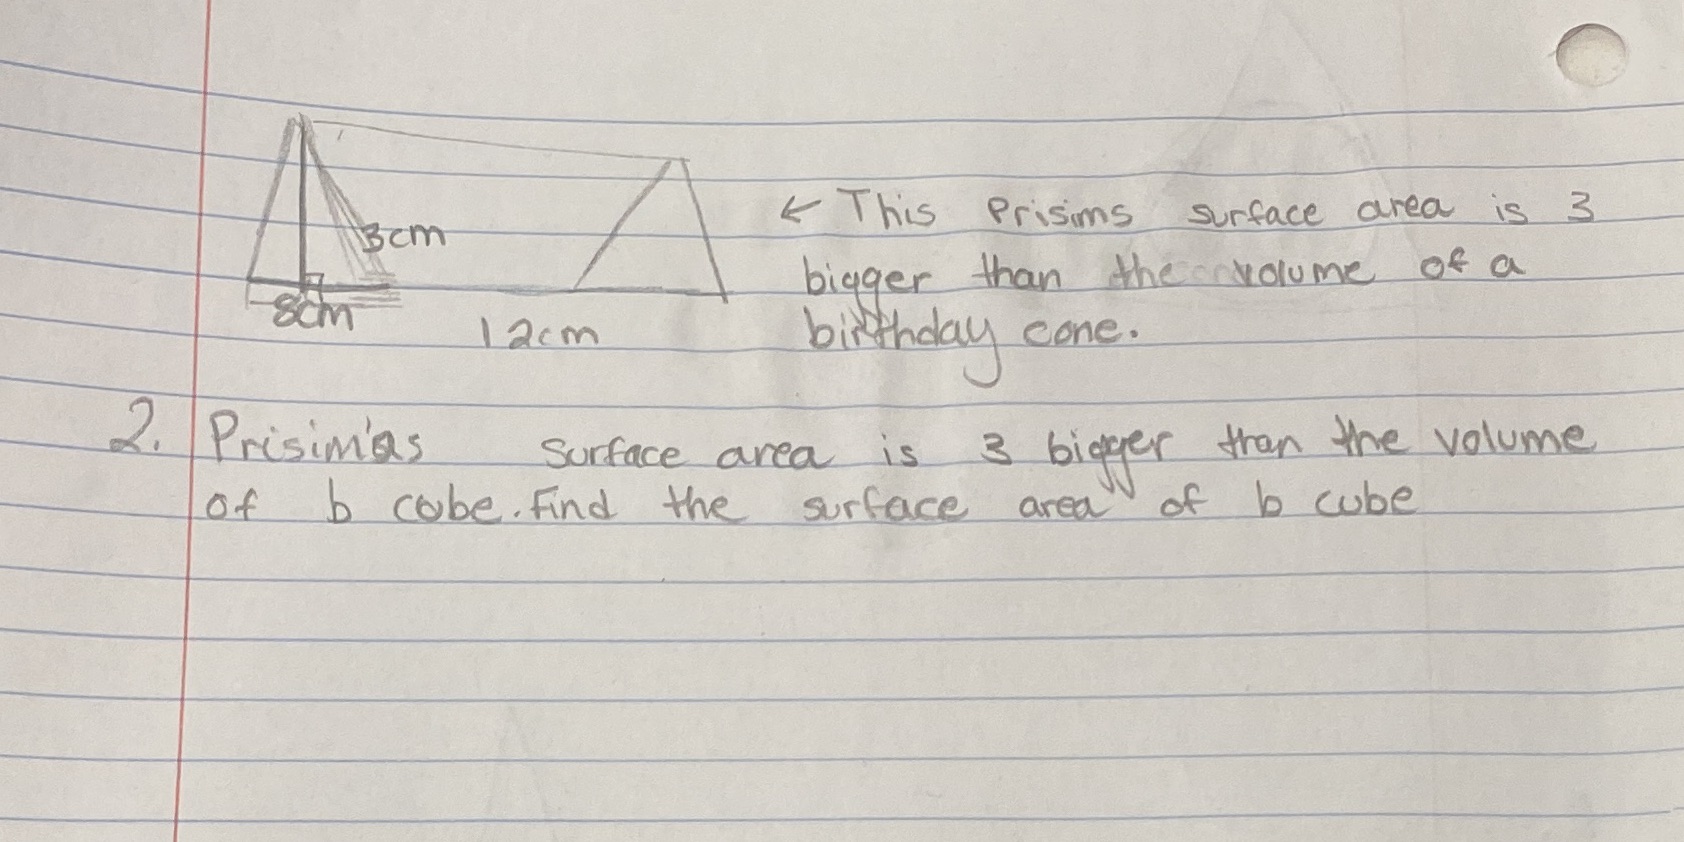 3cm
8cm
12cm
← This Prisims surface area is 3
bigger than the volume of a
birthday cone.
2. Prisim's surface area is 3 bigger than the volume
of b cube. Find the surface area of b cube